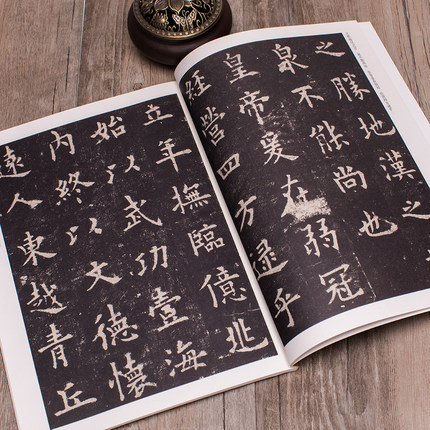 之勝地漢之
泉不能尚也
皇帝爰在弱冠
經營四方逮乎
立年撫臨億兆
始以武功壹海
內終以文德懷
遠人東越青丘